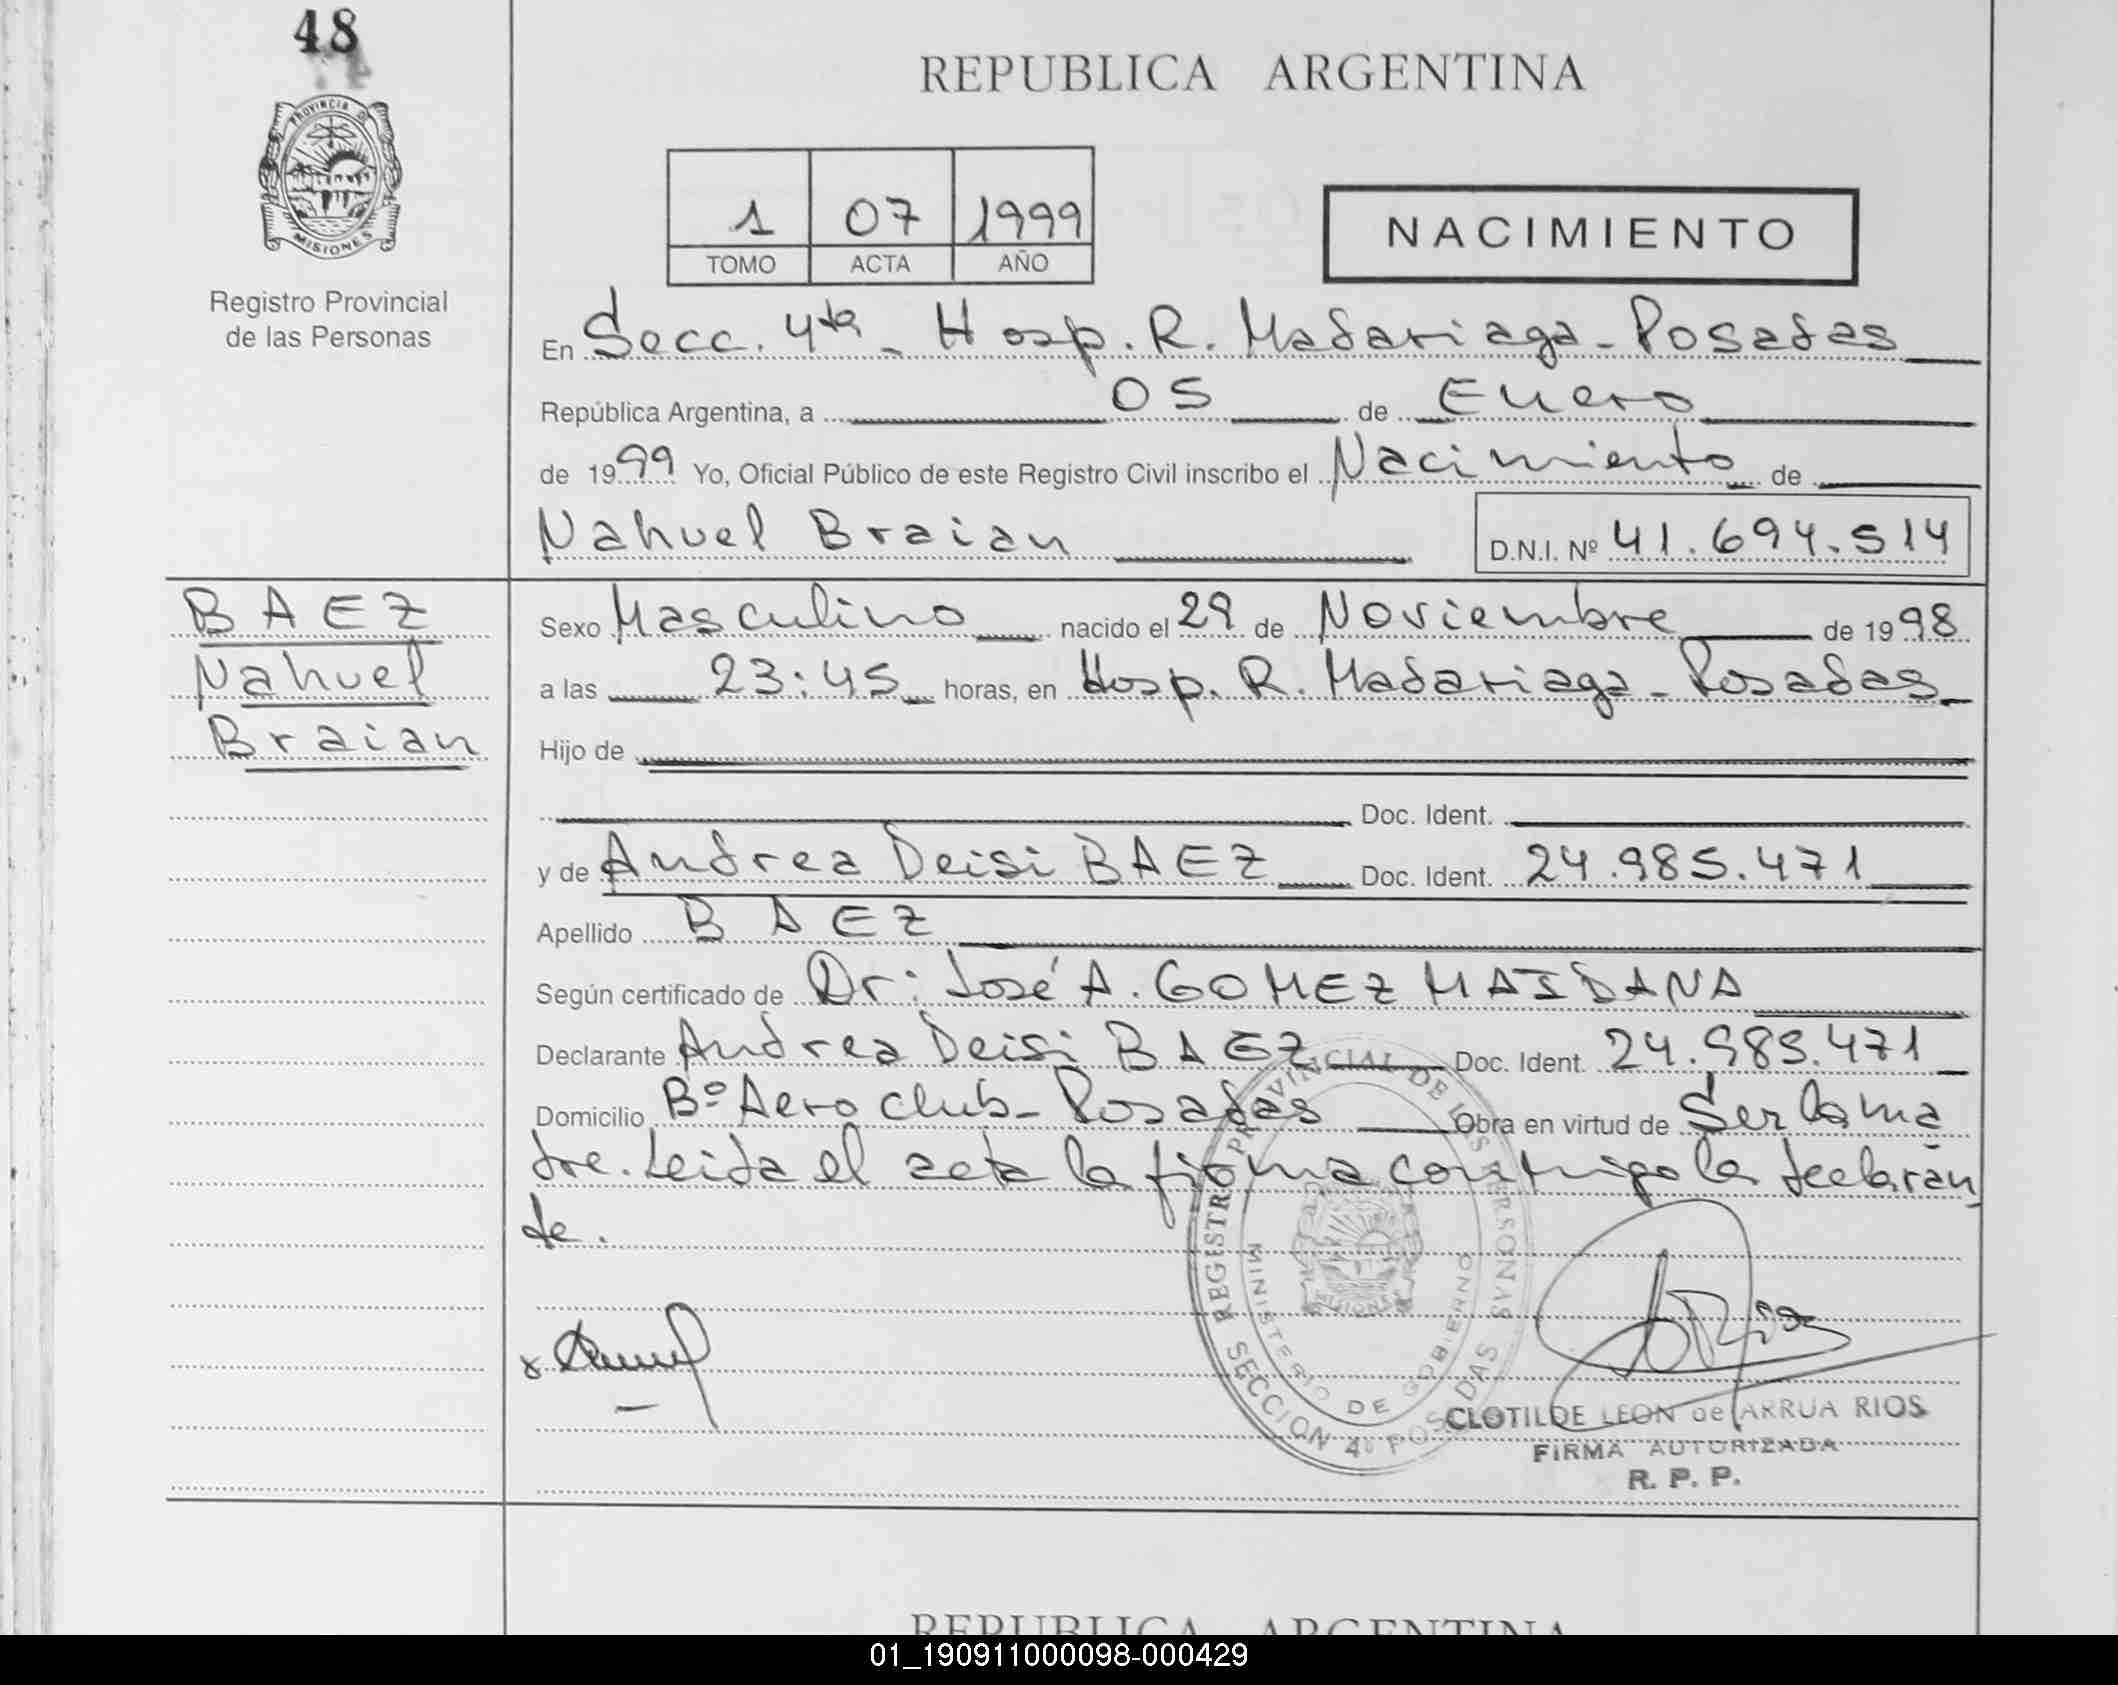 48
REPUBLICA ARGENTINA
PROVINCIA D
MISIONES
Registro Provincial
de las Personas
1 07 1999
TOMO ACTA AÑO
NACIMIENTO
En Secc. 4ta - Hosp. R. Madariaga - Posadas
República Argentina, a 05 de Enero
de 1999 Yo, Oficial Público de este Registro Civil inscribo el Nacimiento de
Nahuel Braian D.N.I. Nº 41.694.514
BAEZ
Nahuel
Braian
Sexo Masculino nacido el 29 de Noviembre de 1998
a las 23:45 horas, en Hosp. R. Madariaga - Posadas
Hijo de
Doc. Ident.
y de Andrea Deisi BAEZ Doc. Ident. 24.985.471
Apellido BAEZ
Según certificado de Dr: José A. GOMEZ MAIDANA
Declarante Andrea Deisi BAEZ Doc. Ident. 24.985.471
Domicilio Bº Aero club - Posadas Obra en virtud de Ser la ma
dre. Leida el acta la firma conmigo la declaran
te.
REGISTRO PROVINCIAL DE LAS PERSONAS
SECCION 4º POSADAS
MINISTERIO DE GOBIERNO
MISIONES
x
CLOTILDE LEON de ARRUA RIOS
FIRMA AUTORIZADA
R. P. P.
REPUBLICA ARGENTINA
01_190911000098-000429